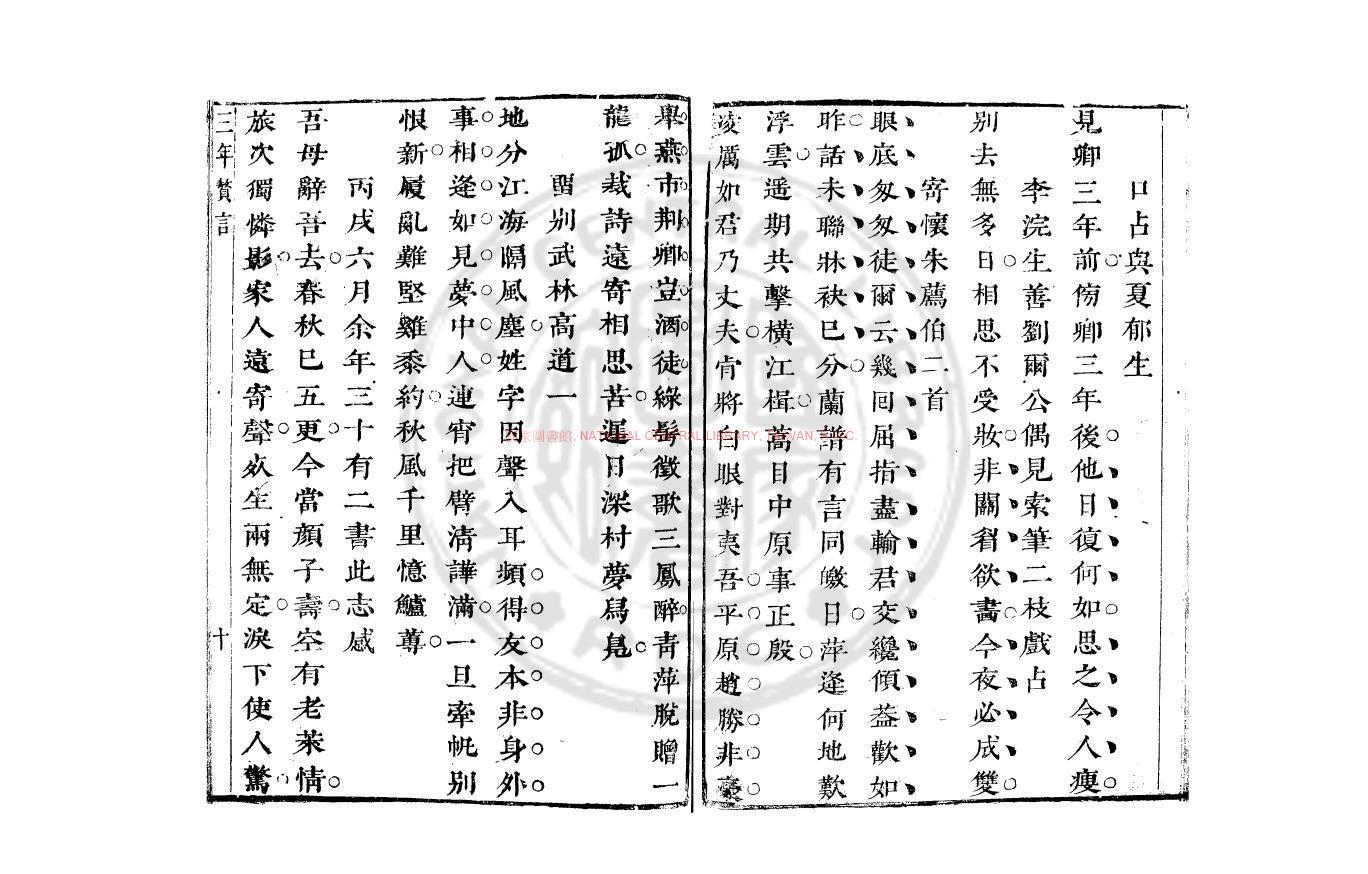 口占與夏郁生
見卿三年前傍卿三年後他日復何如思之令人瘦
李浣生善劉爾公偶見索筆二枝戲占
別去無多日相思不受妝非關眉欲畵今夜必成雙
寄懷朱薦伯二首
眼底匆匆徒爾云幾囘屈指盡輸君交纔傾葢歡如
昨話未聯牀袂已分蘭譜有言同皦日萍逢何地歎
浮雲遥期共擊橫江楫蒿目中原事正殷
凌厲如君乃丈夫肯將白眼對夷吾平原趙勝非豪
舉燕市荆卿豈酒徒綠髩徵歌三鳳醉靑萍脫贈一
龍孤裁詩遠寄相思苦遲日深村夢爲鳧
畱別武林高道一
地分江海隔風塵姓字因聲入耳頻得友本非身外
事相逢如見夢中人連宵把臂淸譁滿一旦牽帆別
恨新履亂難堅雞黍約秋風千里憶鱸蓴
丙戌六月余年三十有二書此志感
吾母辭吾去春秋巳五更今當顏子壽空有老萊情
旅次獨憐影家人遠寄聲死生兩無定淚下使人驚
三年贊言
十
國家圖書館, NATIONAL CENTRAL LIBRARY, TAIWAN, R.O.C.